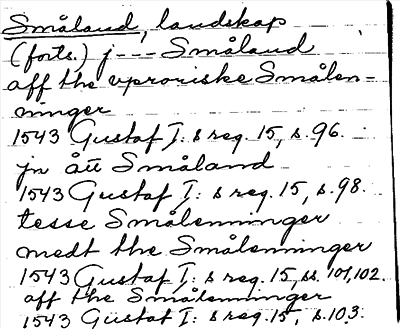 Småland, landskap
(forts.) j --- Småland
aff the vproriske Smålen-
ninger
1543 Gustaf I: s reg. 15, s. 96.
jn ått Småland
1543 Gustaf I: s reg. 15, s. 98.
tesse Smålenninger
medt the Smålenninger
1543 Gustaf I: s reg. 15, ss. 101, 102.
aff the Smålenninger
1543 Gustaf I: s reg. 15, s. 103.